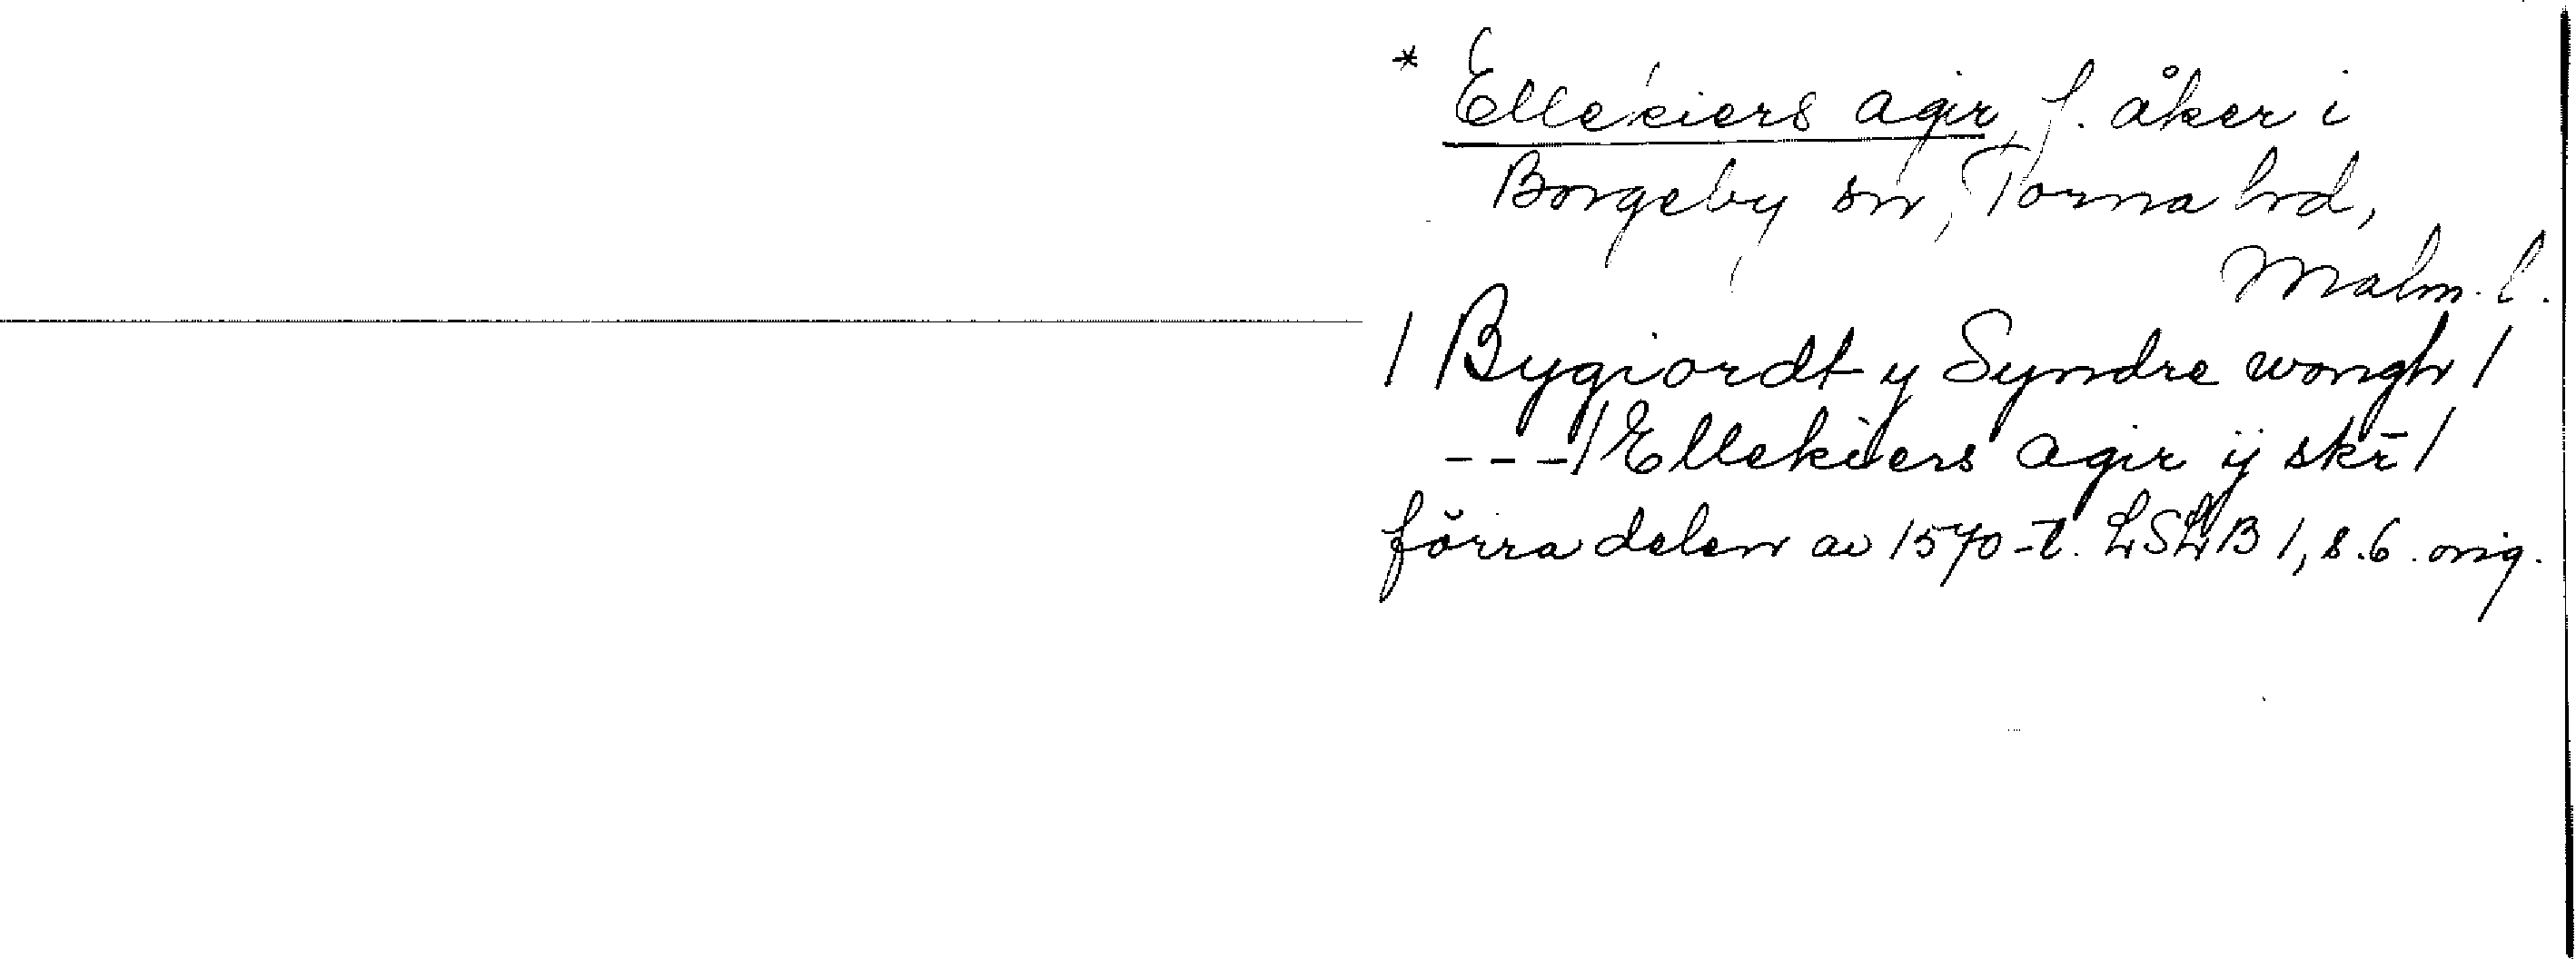 * Ellekiers agir, f. åker i
Borgeby sn, Torna hd,
Malm. l.
/ Bygiordt y Syndre wongh /
---/ Ellekiers agir ij skr̄ /
förra delen av 1570-t. LSLB 1, s. 6. orig.